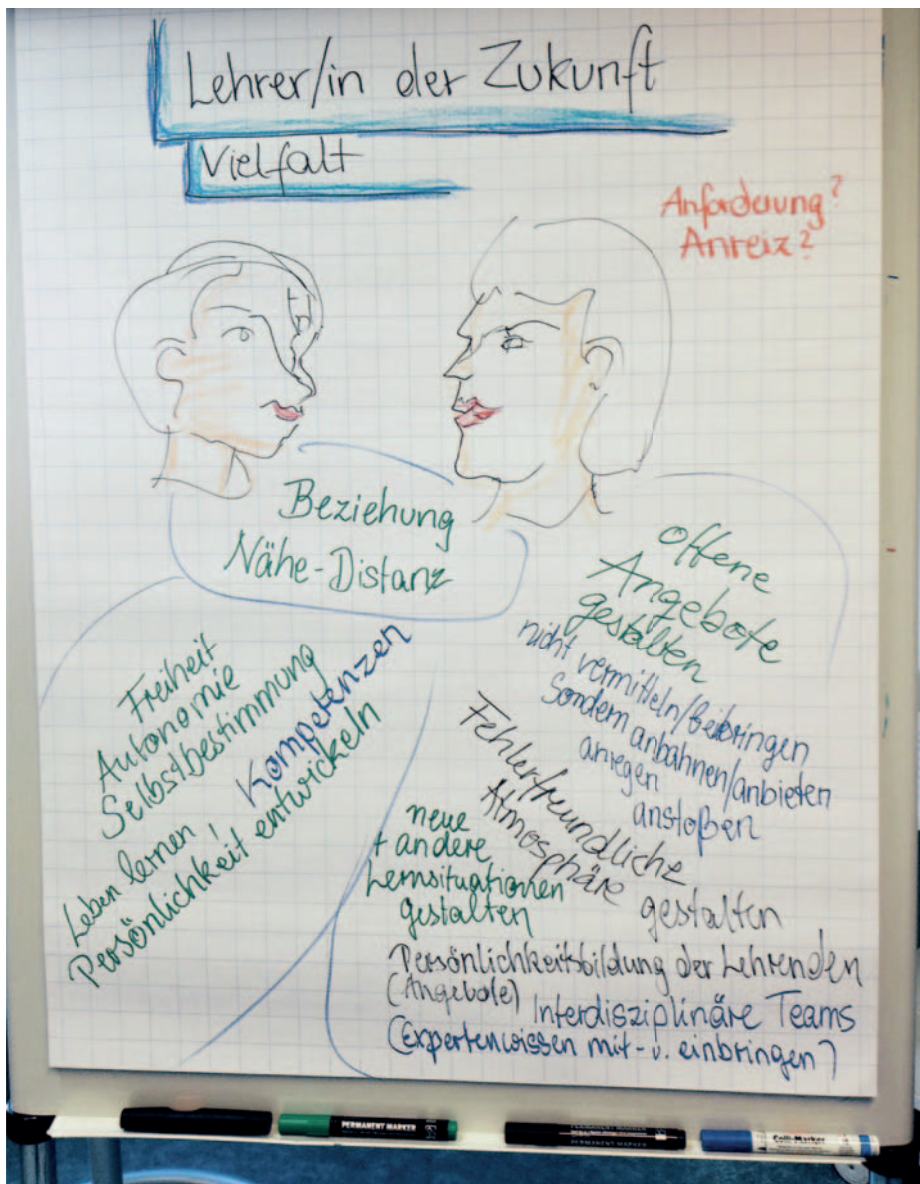 Lehrer/in der Zukunft
Vielfalt
Anforderung?
Anreiz?
Beziehung
Nähe-Distanz
Freiheit
Autonomie
Selbstbestimmung
Kompetenzen
Leben lernen,
Persönlichkeit entwickeln
offene
Angebote
gestalten
nicht vermitteln/beibringen
Sondern anbahnen/anbieten
anregen
anstoßen
Fehlerfreundliche
Atmosphäre
gestalten
neue
+ andere
Lernsituationen
gestalten
Persönlichkeitsbildung der Lehrenden
(Angebote)
Interdisziplinäre Teams
(Expertenwissen mit- u. einbringen)
PERMANENT MARKER
PERMANENT MARKER
Colli-Marker